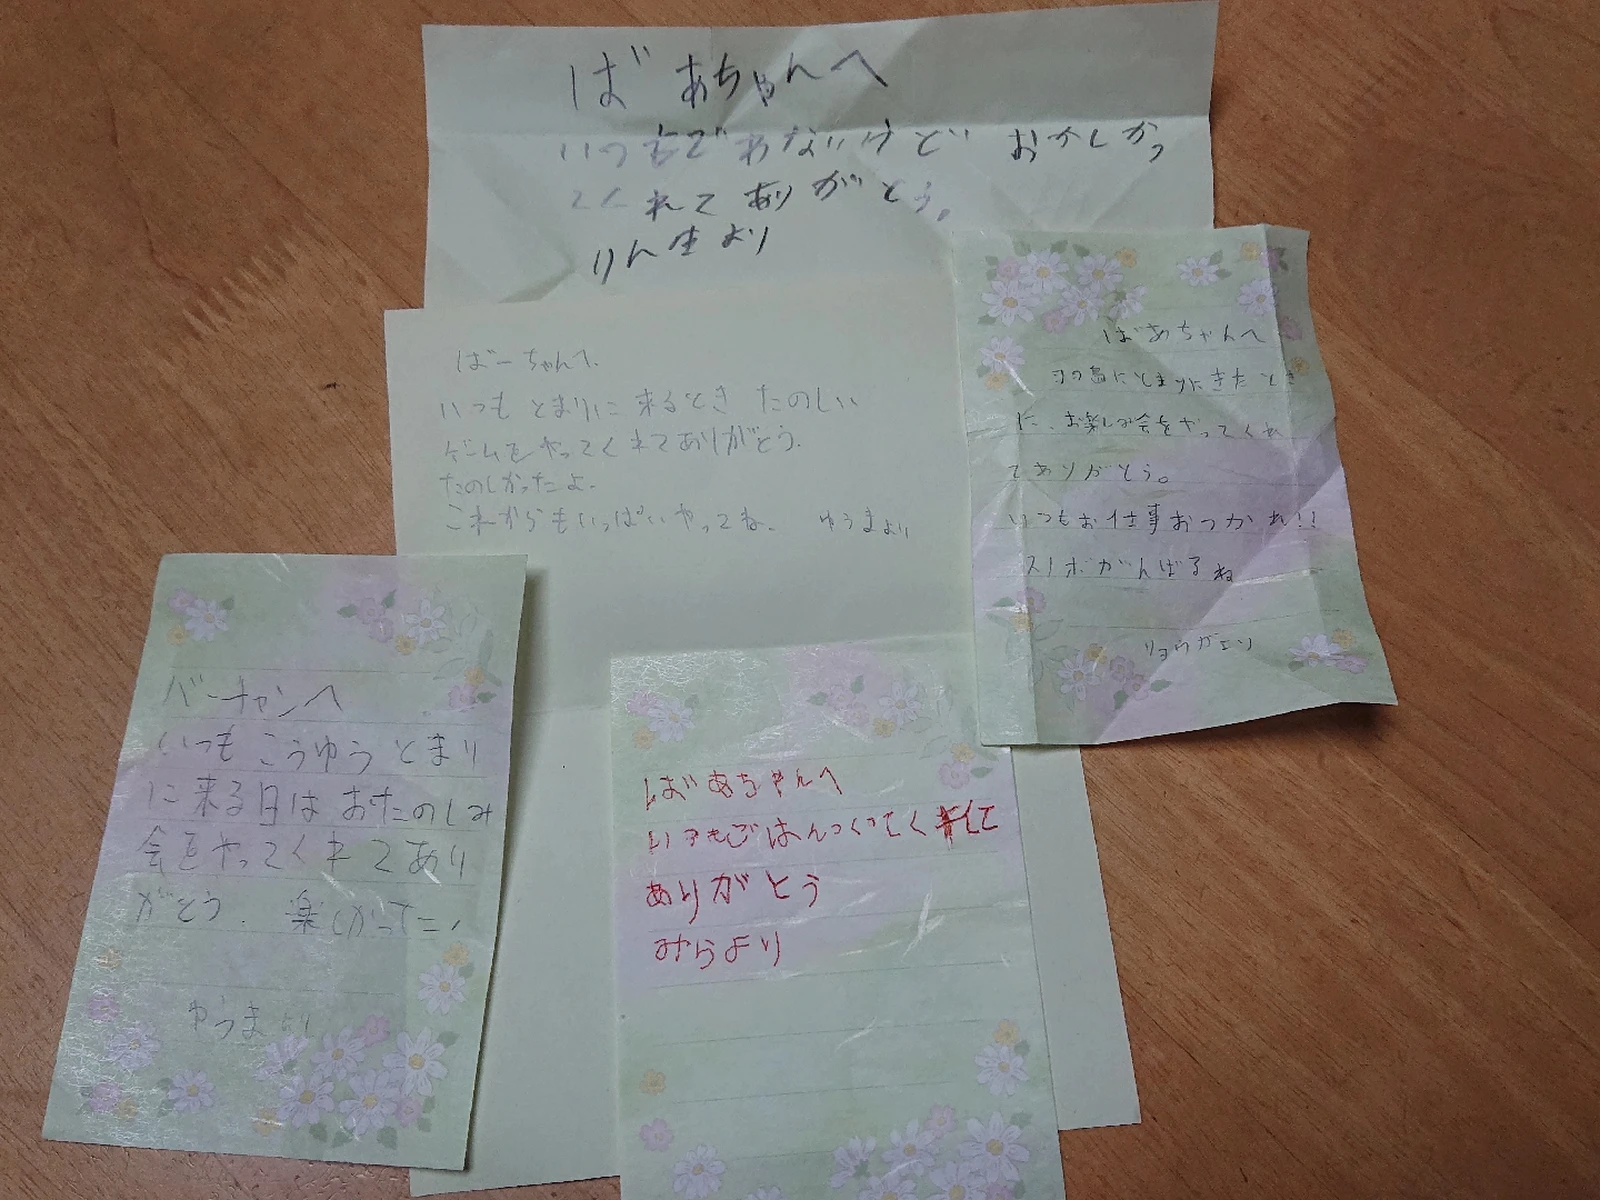 ばあちゃんへ
いつもであないけど おかしかっ
てくれて ありがとう。
りん生より
ばーちゃんへ.
いつも とまりに来るとき たのしい
ゲームをやってくれてありがとう.
たのしかったよ.
これからもいっぱいやってね. ゆうまより
ばあちゃんへ
にとまりにきたとき
に、お楽しみ会をやってくれ
てありがとう。
いつもお仕事おつかれ!!
がんばるね
リョウガより
バーチャンへ
いつもこうゆうとまり
に来る日は おたのしみ
会をやってくれてあり
がとう. 楽しかった
ゆうまより
ばあちゃんへ
いつもごはんつくってくれて
ありがとう
みらより